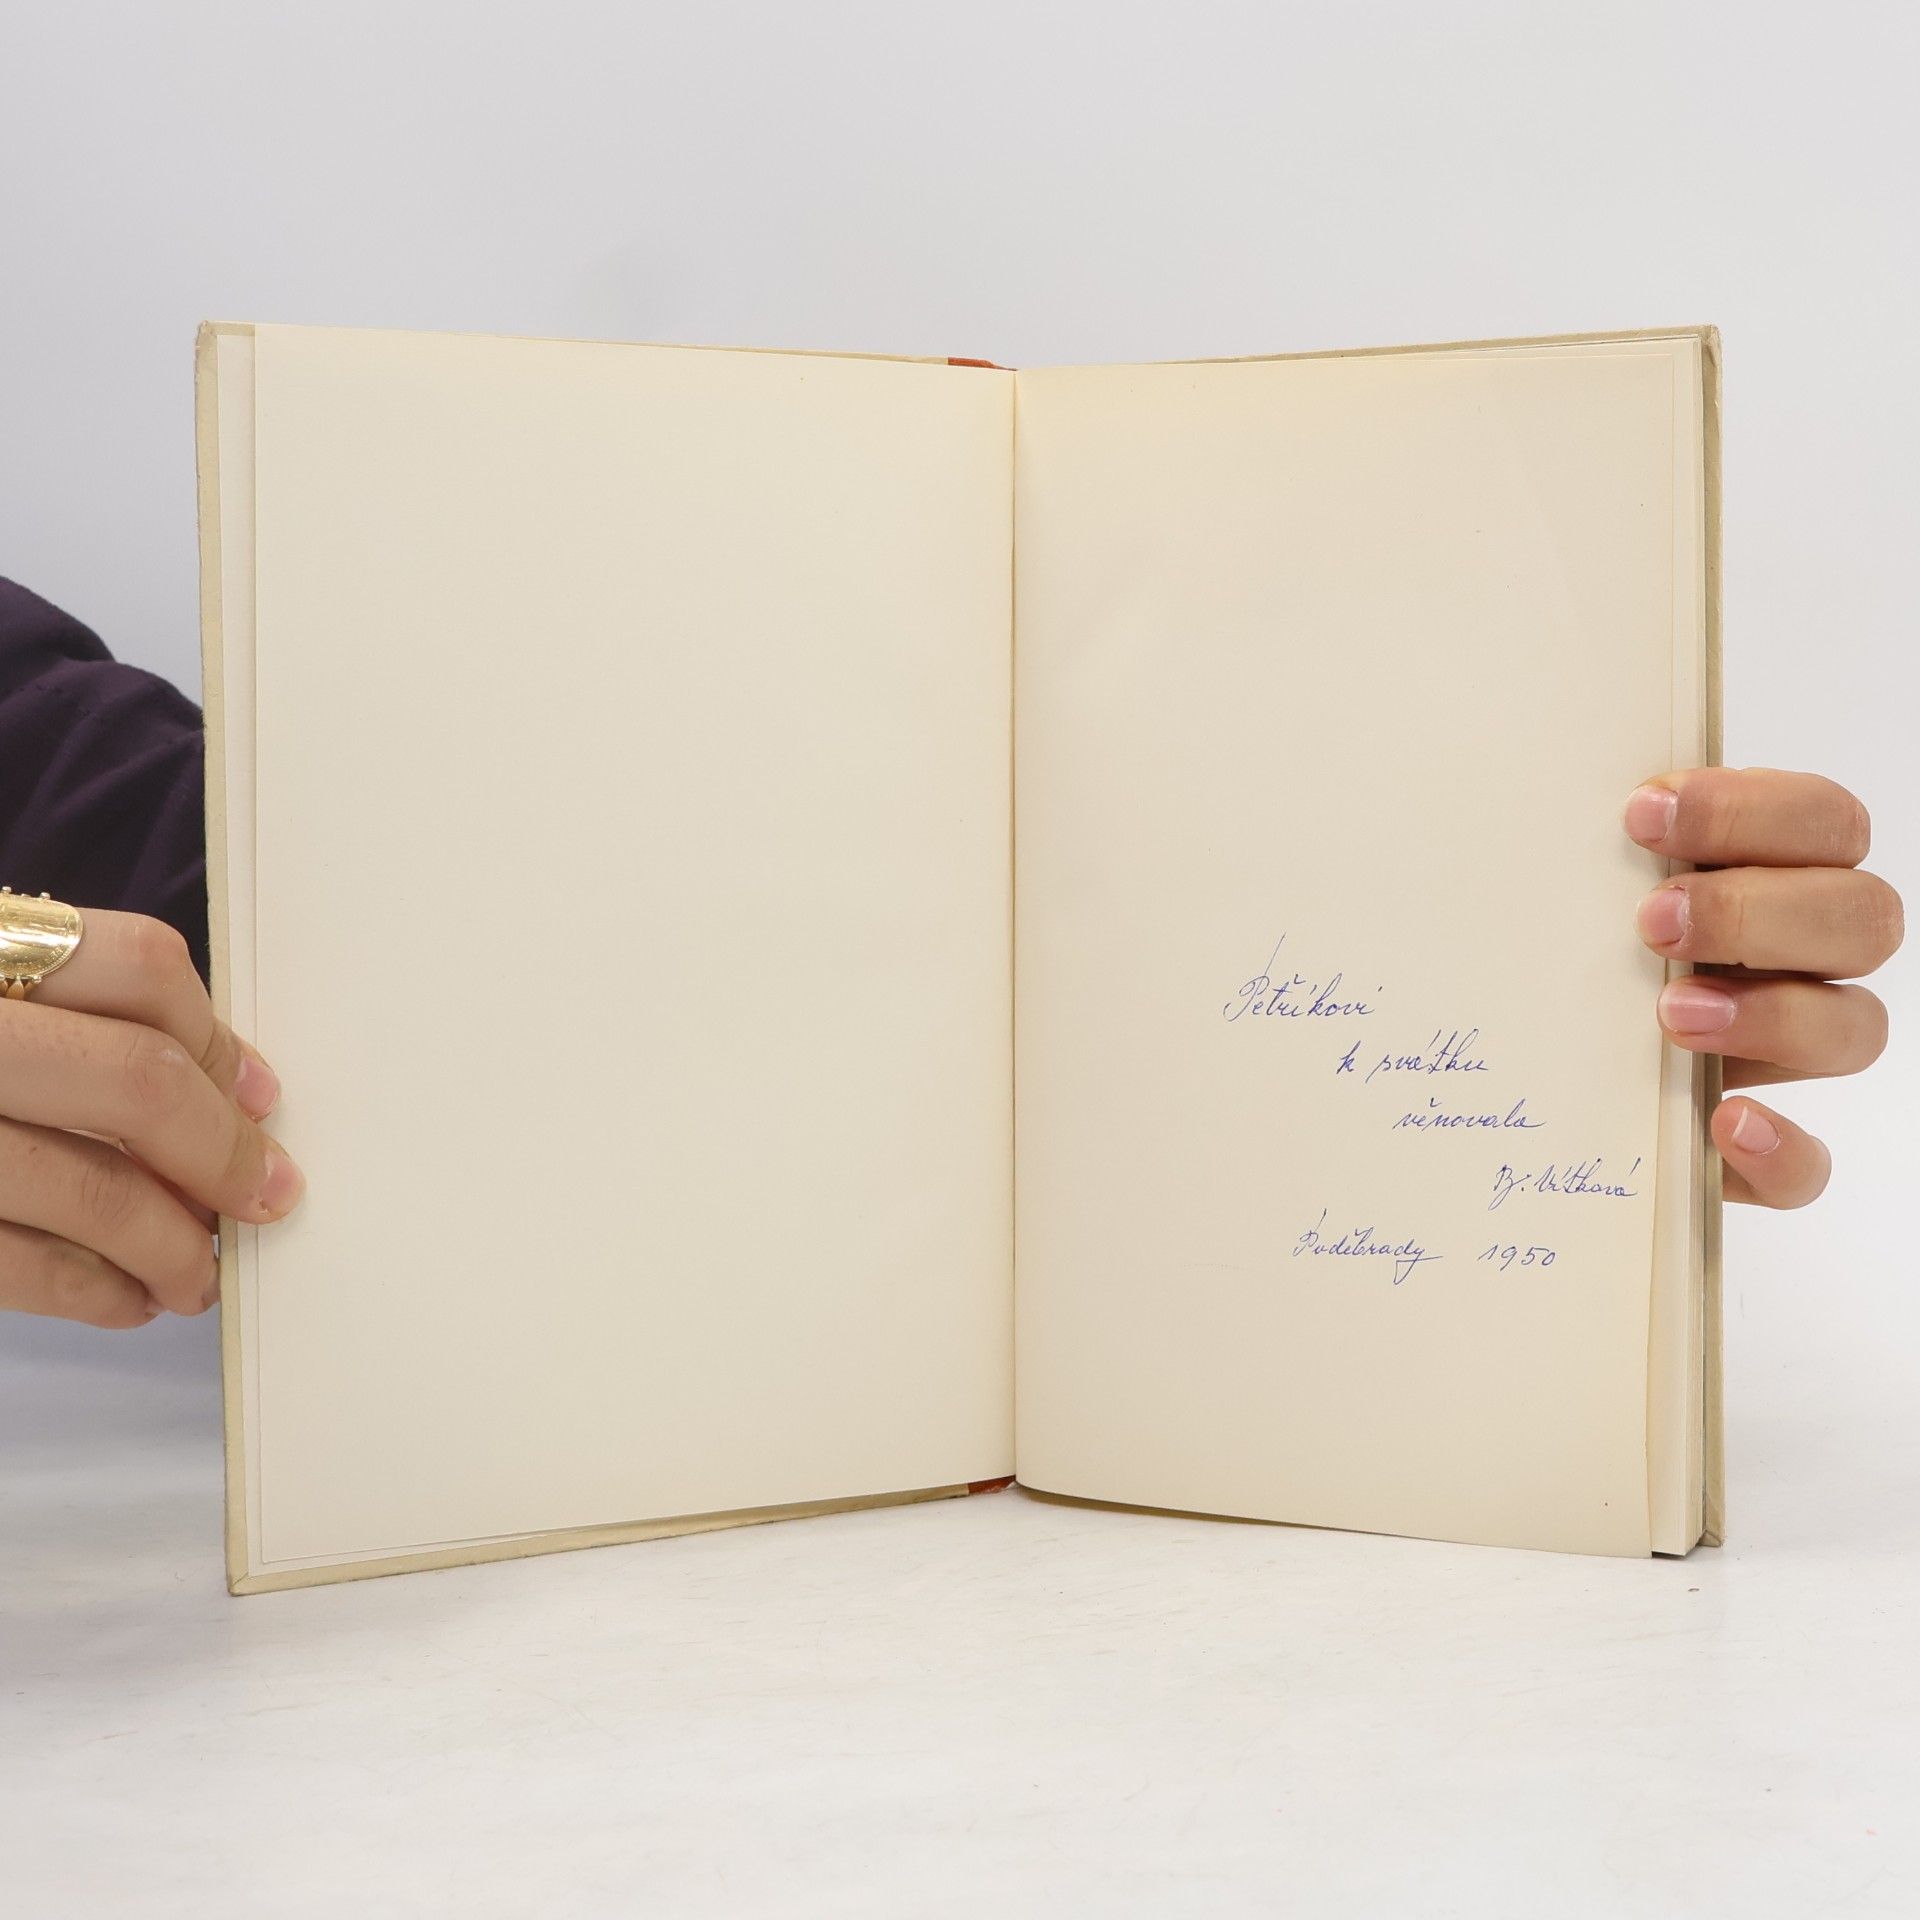 Petříkovi
k svátku
věnovala
B. Vítková
Poděbrady 1950